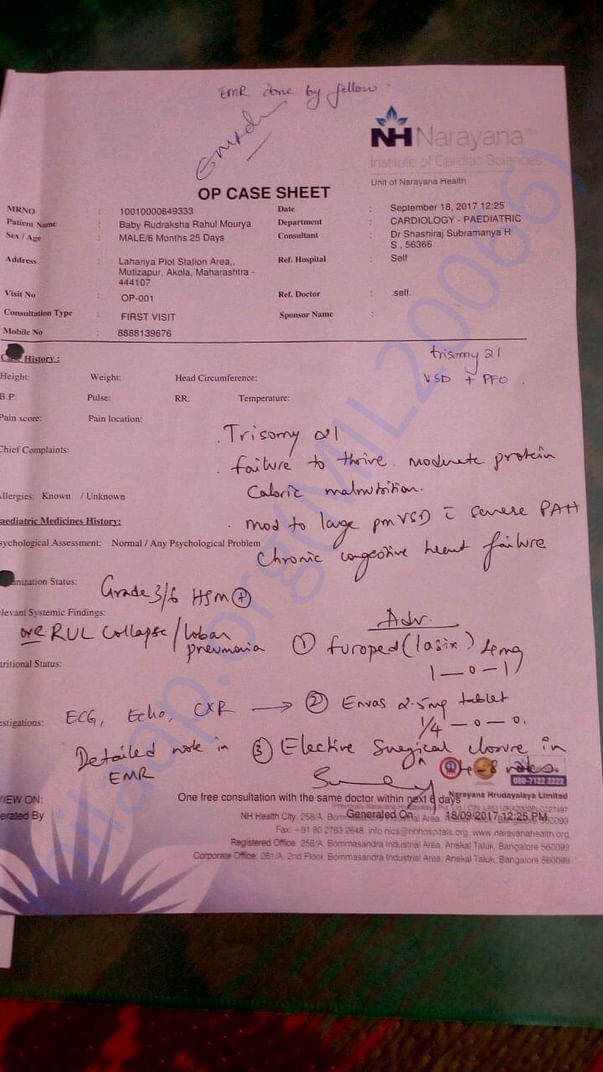 EMR done by fellow.
NH Narayana
Institute of Cardiac Sciences
Unit of Narayana Health
OP CASE SHEET
MRNO : 10010000649333 Date : September 18, 2017 12:25
Patient Name : Baby Rudraksha Rahul Mourya Department : CARDIOLOGY - PAEDIATRIC
Sex / Age : MALE/6 Months 25 Days Consultant : Dr Shashiraj Subramanya H S , 56366
Address : Lahariya Plot Station Area,, Mutizapur, Akola, Maharashtra - 444107 Ref. Hospital : Self
Visit No : OP-001 Ref. Doctor : .self.
Consultation Type : FIRST VISIT Sponsor Name :
Mobile No : 8888139676
History :
trisomy 21
VSD + PFO.
Height: Weight: Head Circumference:
B.P: Pulse: RR: Temperature:
Pain score: Pain location:
. Trisomy 21
Chief Complaints:
. failure to thrive. moderate protein
caloric malnutrition.
Allergies: Known / Unknown
aediatric Medicines History:
. mod to large pm VSD c̄ severe PAH
sychological Assessment: Normal / Any Psychological Problem
Chronic congestive heart failure
unization Status:
Grade 3/6 HSM (+)
elevant Systemic Findings:
RUL collapse / lobar pneumonia
Adv.
① furoped (lasix) 4mg
1 — 0 — 1
tritional Status:
estigations: ECG, Echo, CXR → ② Envas 2.5mg tablet
1/4 — 0 — 0.
Detailed note in EMR
③ Elective surgical closure in
080-7122 2222
VIEW ON:
One free consultation with the same doctor within next 6 days
Narayana Hrudayalaya Limited
erated By
Generated On 18/09/2017 12:25 PM
NH Health City, 258/A, Bommasandra Industrial Area, Anekal Taluk, Bangalore 560099
Fax: +91 80 2783 2648, info.nics@nhhospitals.org, www.narayanahealth.org
Registered Office: 258/A, Bommasandra Industrial Area, Anekal Taluk, Bangalore 560099
Corporate Office: 261/A, 2nd Floor, Bommasandra Industrial Area, Anekal Taluk, Bangalore 560099
milaap.org(MIL200666)